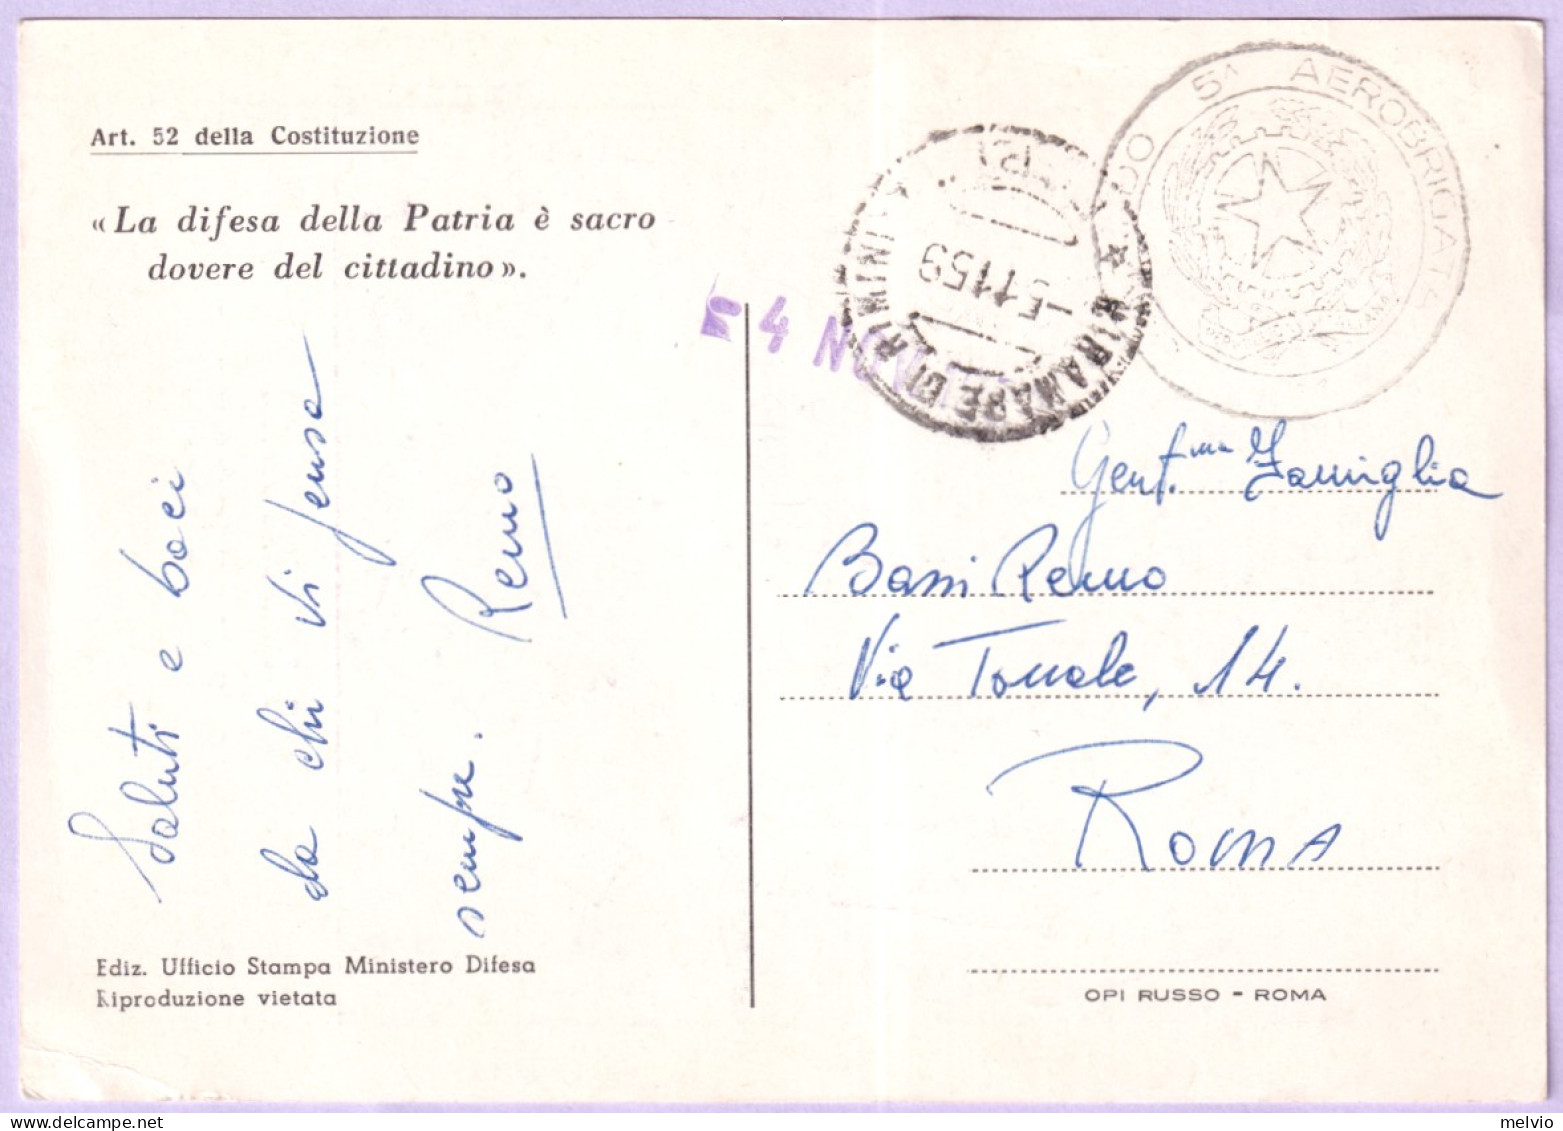 Art. 52 della Costituzione
«La difesa della Patria è sacro
dovere del cittadino».
Saluti e baci
da chi vi pensa
sempre. Remo
Ediz. Ufficio Stampa Ministero Difesa
Riproduzione vietata
- 4 NOV
MIRAMARE DI RIMINI
-5 11 59
5ª AEROBRIGATA
Gent.ma Famiglia
Bassi Remo
Via Tonale, 14.
Roma
OPI RUSSO - ROMA
melvio